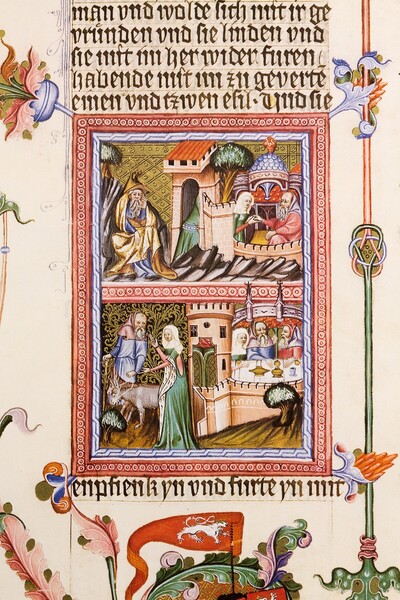 man vnd wolde sich mit ir ge
vründen vnd sie linden vnd
sie mit im her wider furen
habende mit im zu geverte
einen vnd tzwen esil. Vnd sie
enpfienk yn vnd furte yn mit